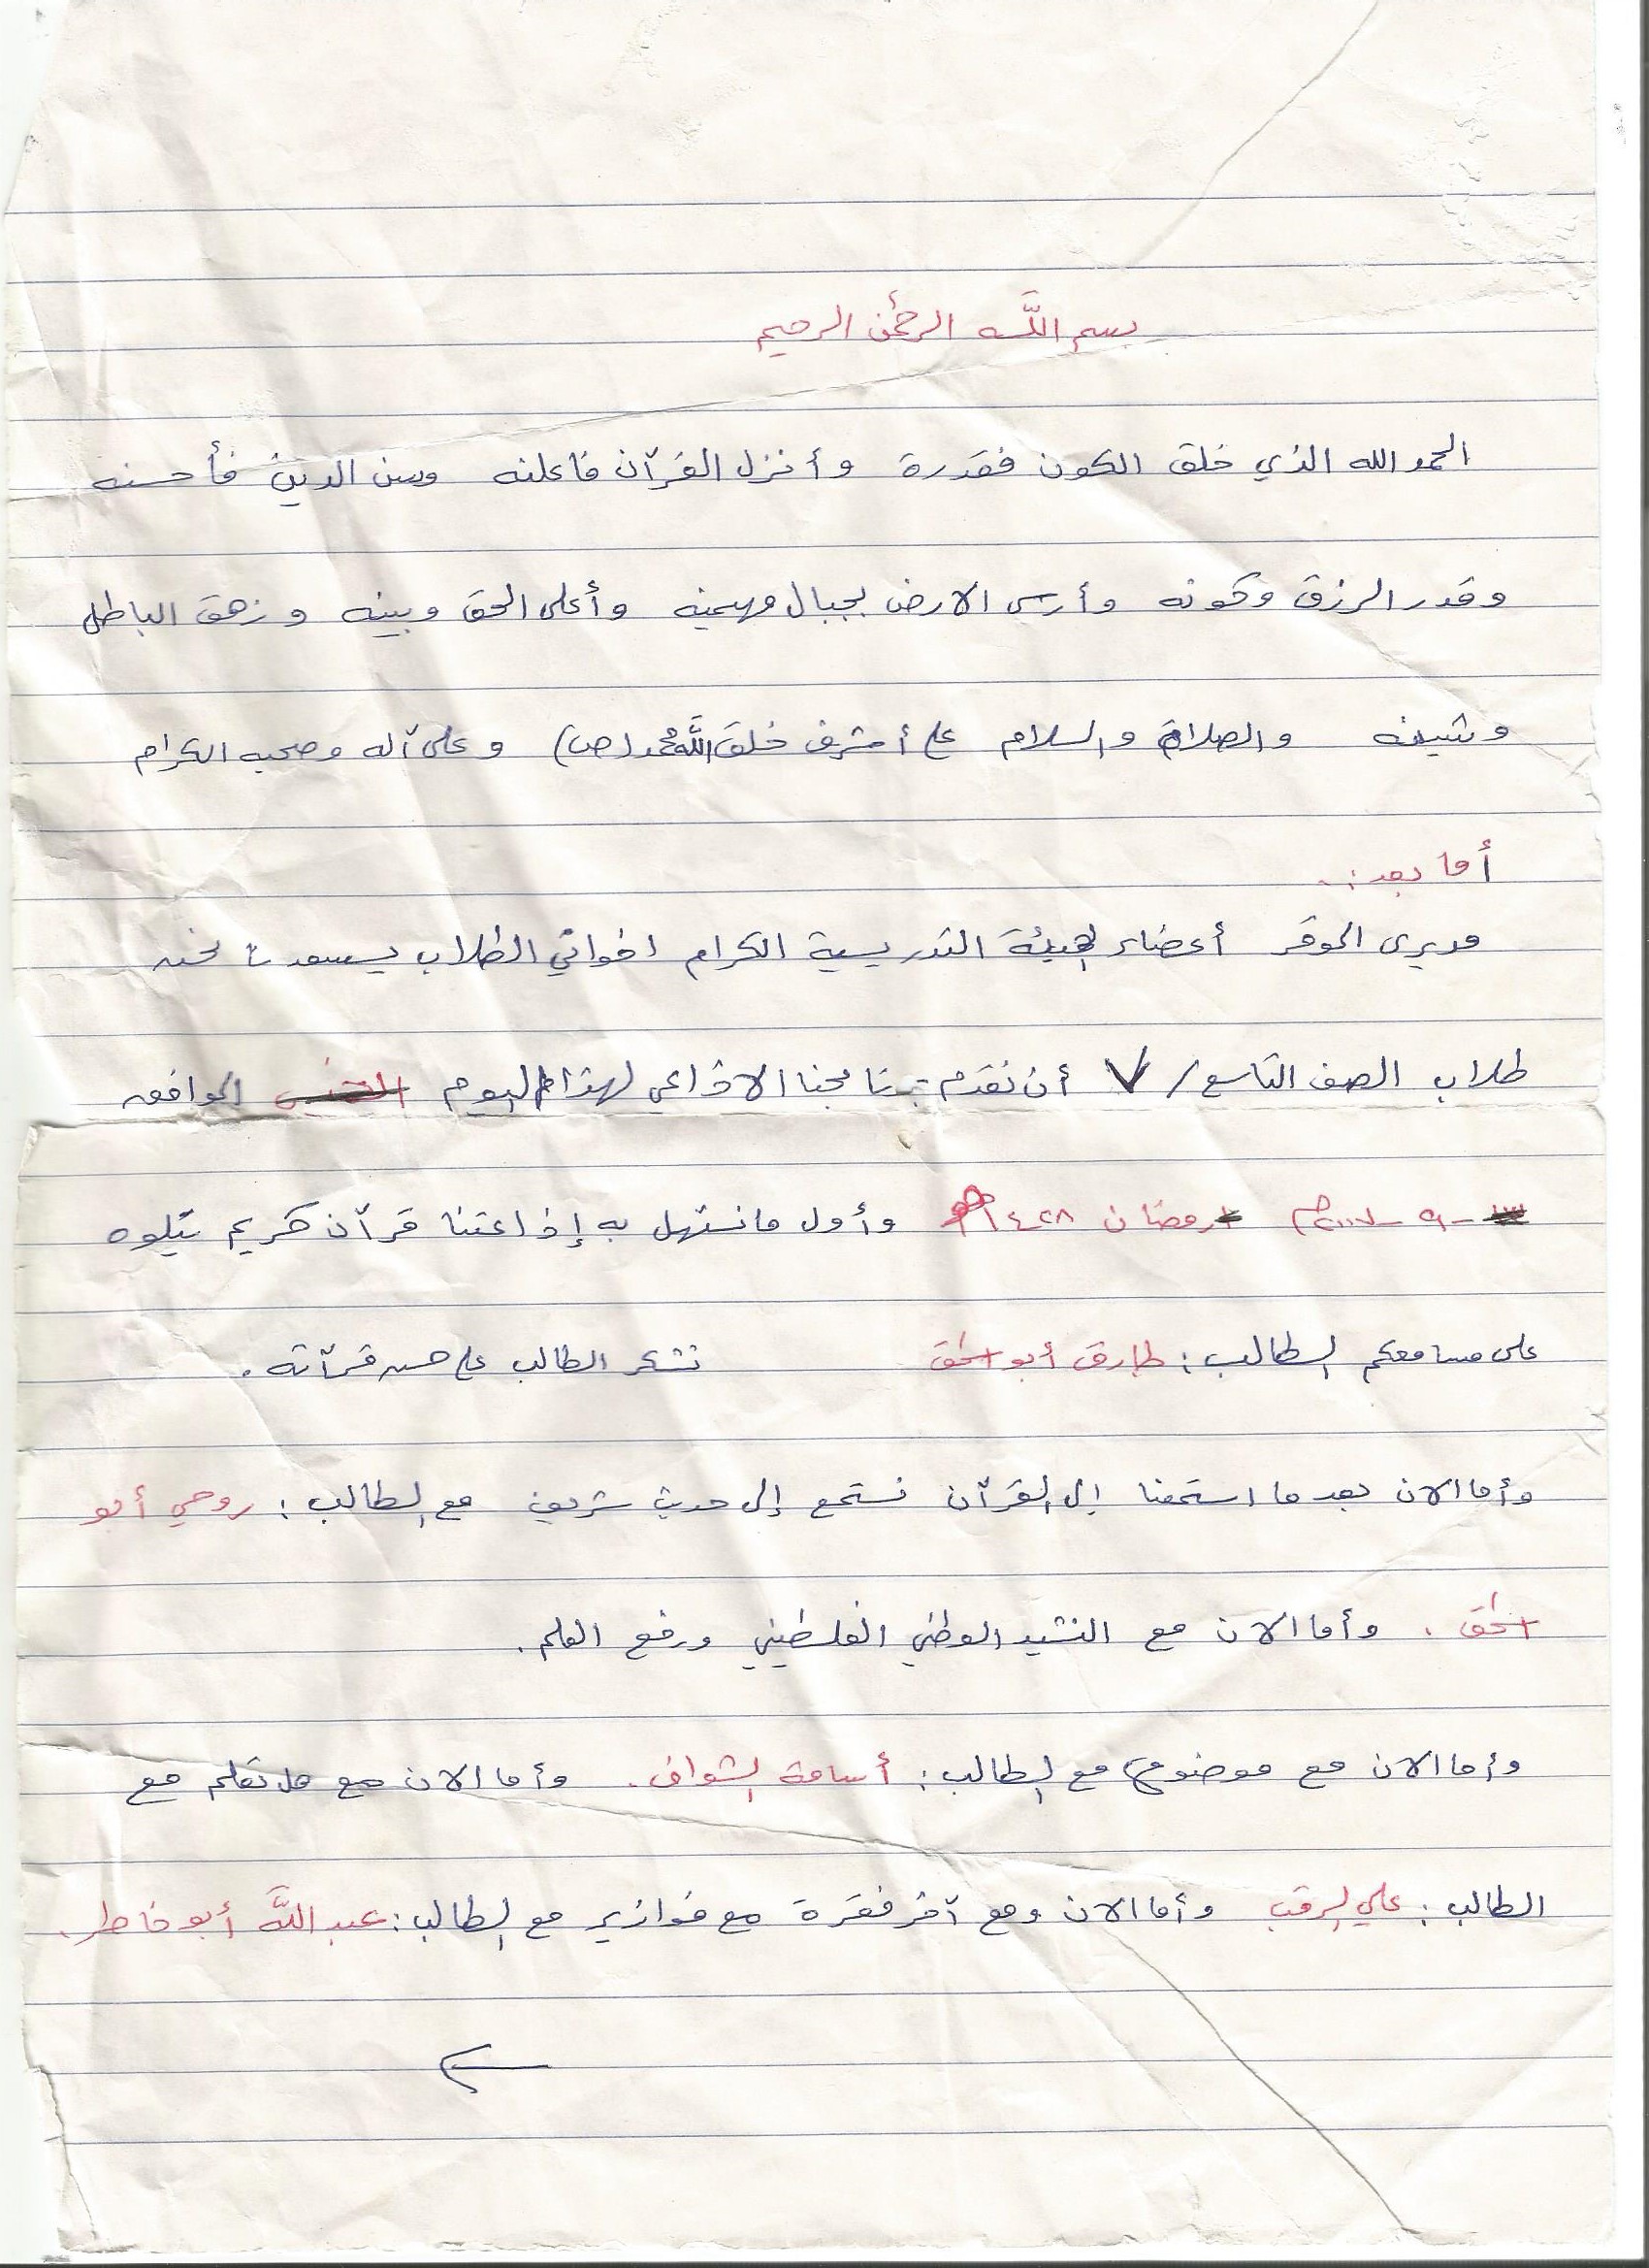 بسم اللَّه الرحمٰن الرحيم
الحمد الله الذي خلق الكون فقدرة وأنزل القرآن فاعلنه وسن الدين فأحسنه
وقدر الرزق وكونه وأرسى الارض بجبال مهيمنه وأعلى الحق وبينه وزهق الباطل
وشينه والصلاة والسلام على أشرف خلق اللَّه محمد (ص) وعلى آله وصحبه الكرام
أما بعد :.
مديري الموقر أعضاء الهيئة التدريسية الكرام اخواني الطلاب يسعدنا نحن
طلاب الصف التاسع / ٧ أن نقدم برنامجنا الاذاعي لهذا اليوم الموافق
- ٩ - ٢٠٠٧م رمضان ١٤٢٨هـ وأول ما نستهل به إذاعتنا قرآن كريم يتلوه
على مسامعكم الطالب : طارق أبو اسحٰق نشكر الطالب على حسن قرآته .
وأما الان بعد ما استمعنا إلى القرآن نستمع إلى حديث شريف مع الطالب : روحي أبو
اسحٰق . وأما الان مع النشيد الوطني الفلسطيني ورفع العلم .
وأما الان مع موضوع مع الطالب : أسامة الشواف . وأما الان مع هل تعلم مع
الطالب : علي الرقب وأما الان ومع آخر فقرة مع فوازير مع الطالب : عبد اللَّه أبو خاطر .